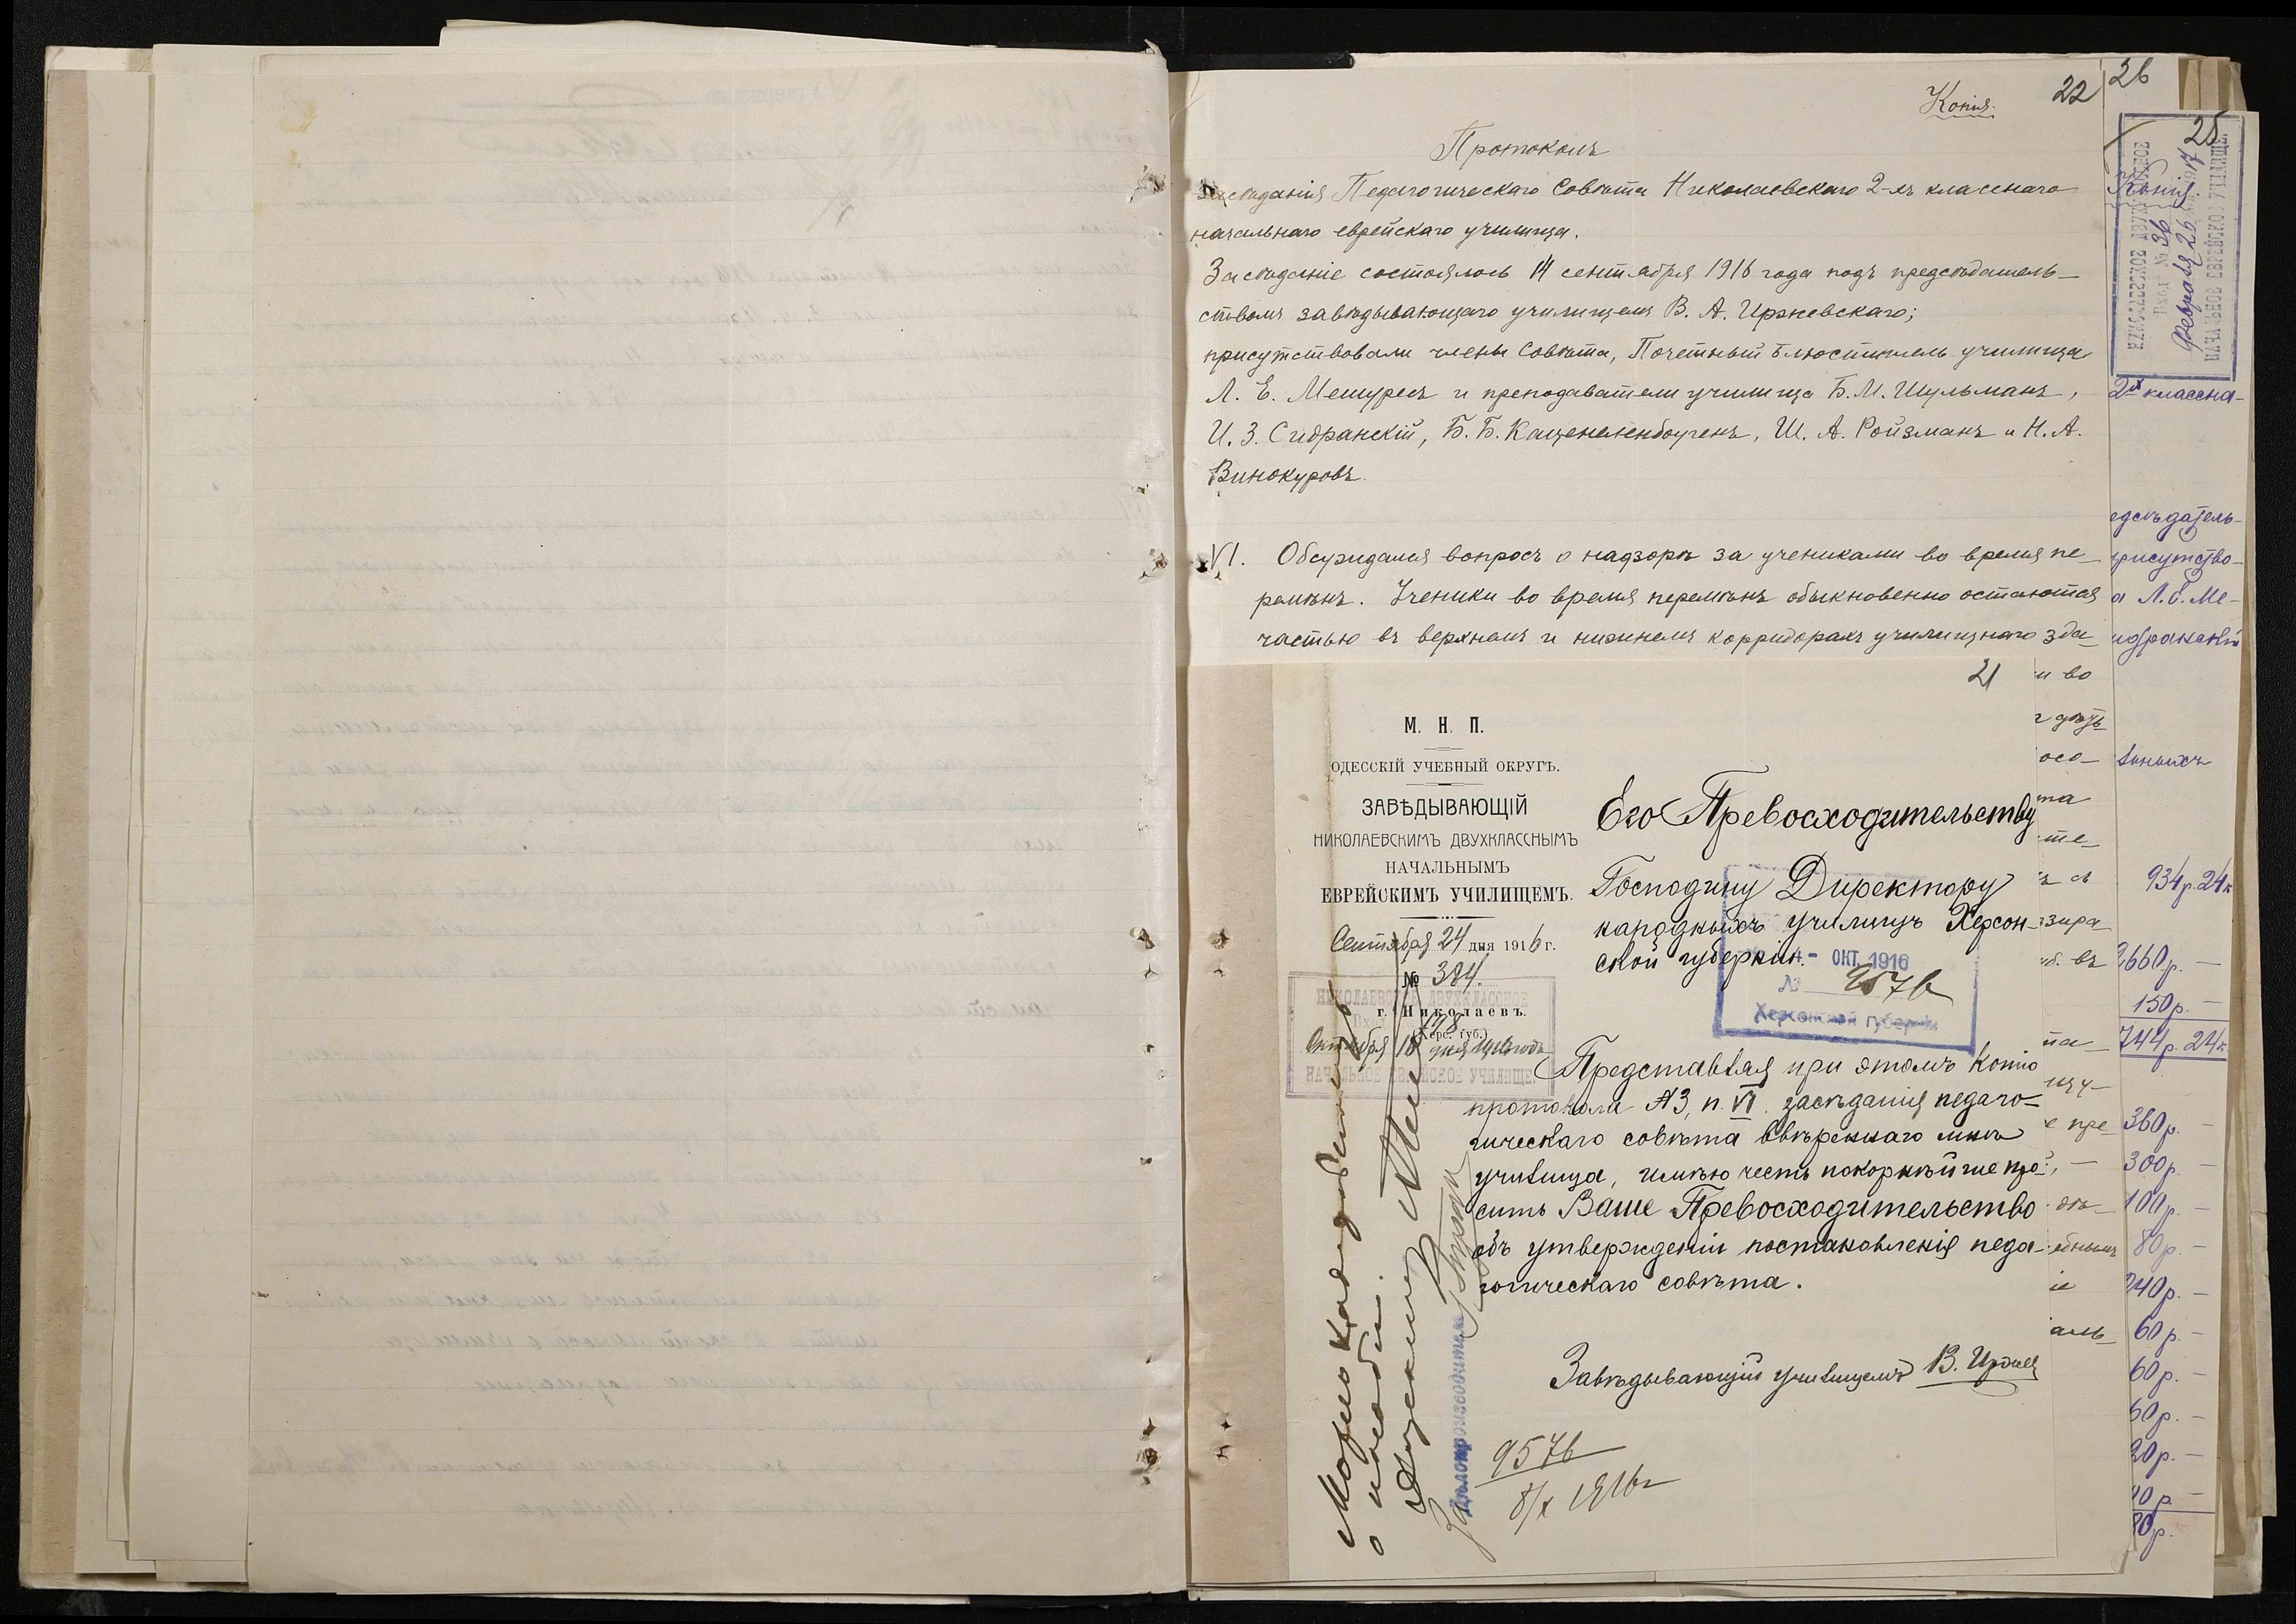 Копія.
22
26
Протоколъ
засѣданія Педагогическаго Совѣта Николаевскаго 2-хъ класснаго
начальнаго еврейскаго училища.
Засѣданіе состоялось 14 сентября 1916 года подъ предсѣдатель-
ствомъ завѣдывающаго училищемъ В. А. Иржевскаго;
присутствовали члены Совѣта, Почетный блюститель училища
Л. Е. Мешуресъ и преподаватели училища Б. М. Шульманъ,
И. З. Сидранскій, Б. Б. Каценеленбогенъ, Ш. А. Ройзманъ и Н. А.
Винокуровъ.
VI. Обсуждался вопросъ о надзорѣ за учениками во время пе-
ремѣнъ. Ученики во время перемѣнъ обыкновенно остаются
частью въ верхнемъ и нижнемъ корридорахъ училищнаго зда-
21
М. Н. П.
ОДЕССКІЙ УЧЕБНЫЙ ОКРУГЪ.
ЗАВѢДЫВАЮЩІЙ
НИКОЛАЕВСКИМЪ ДВУХКЛАССНЫМЪ
НАЧАЛЬНЫМЪ
ЕВРЕЙСКИМЪ УЧИЛИЩЕМЪ.
Сентября 24 дня 1916 г.
№ 384.
г. Николаевъ.
(Херс. губ.)
НИКОЛАЕВСКОЕ ДВУХКЛАССНОЕ
Вход. 178
Октября 18 дня 1916 года
НАЧАЛЬНОЕ ЕВРЕЙСКОЕ УЧИЛИЩЕ
Его Превосходительству
Господину Директору
народныхъ училищъ Херсон-
ской губерніи.
4 - ОКТ. 1916
№ 9576
Херсонской губерніи
Представляя при этомъ копію
протокола №3, п. VI. засѣданія педаго-
гическаго совѣта ввѣреннаго мнѣ
училища, имѣю честь покорнѣйше про-
сить Ваше Превосходительство
объ утвержденіи постановленія педа-
гогическаго совѣта.
Завѣдывающій училищемъ В. Ирж
9576
8/X 1916 г
За Дѣлопроизводителя
и во
осо-
та
зира
въ
25
Копія.
НИКОЛАЕВСКОЕ ДВУХКЛАССНОЕ
№ 36
Февраля 26 дня 1917
НАЧАЛЬНОЕ ЕВРЕЙСКОЕ УЧИЛИЩЕ
2хъ классна-
едсѣдатель-
присутство-
а Л. Е. Ме-
идранскій
934 р. 24 к
2660 р. —
150 р. —
744 р. 24 к
360 р. —
300 р. —
100 р. —
80 р. —
240 р. —
60 р. —
60 р. —
60 р. —
20 р. —
10 р. —